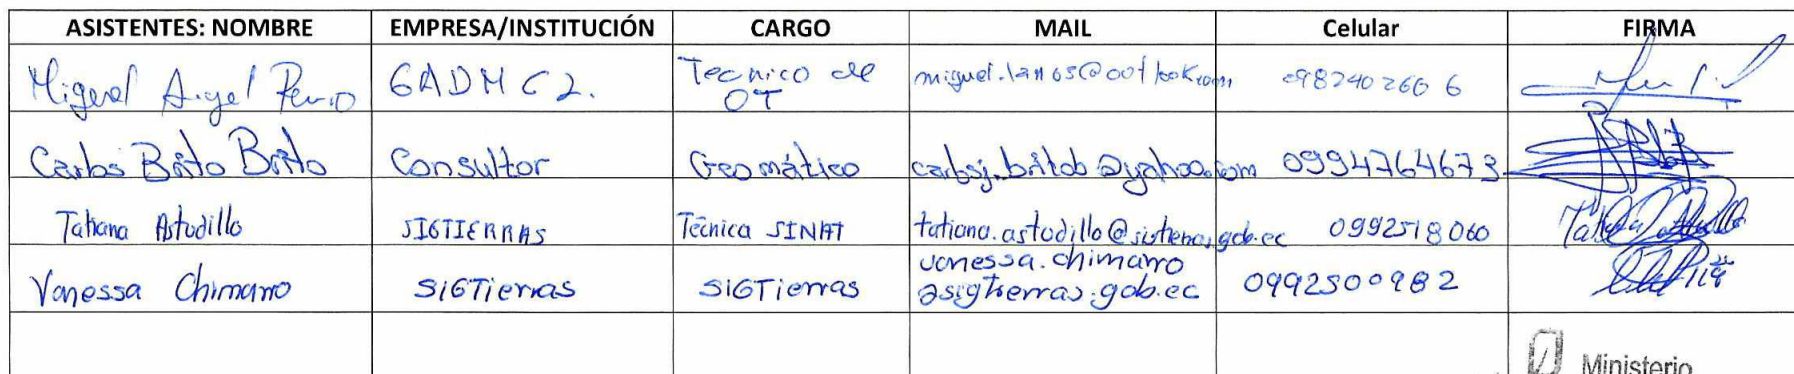 ASISTENTES: NOMBRE EMPRESA/INSTITUCIÓN CARGO MAIL Celular FIRMA
Miguel Angel GADMCZ. Tecnico de OT
Carlos Brito Brito Consultor Geomático carlosj.britob@yahoo.com 0994764673
Tatiana Astudillo SIGTIERRAS Técnica SINAT 0992518060
Vanessa Chimarro SIGTierras SIGTierras vanessa.chimarro @sigtierras.gob.ec 0992500982
Ministerio